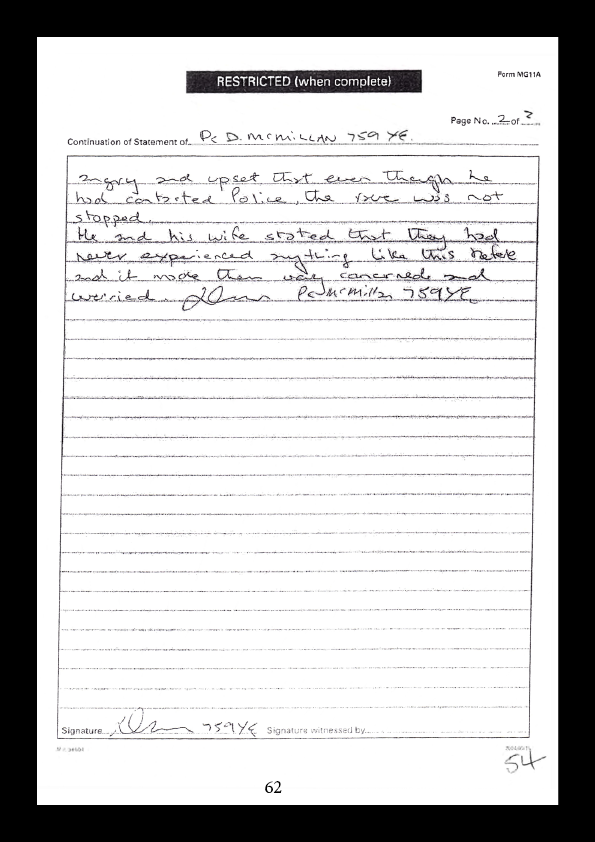 RESTRICTED (when complete)
Form MG11A
Page No. 2 of 2
Continuation of Statement of PC D. McMILLAN 759 YE.
angry and upset that even though he
had contacted Police, the rave was not
stopped.
He and his wife stated that they had
never experienced anything like this before
and it made them very concerned and
worried. PC McMillan 759YE
Signature 759YE Signature witnessed by
54
62